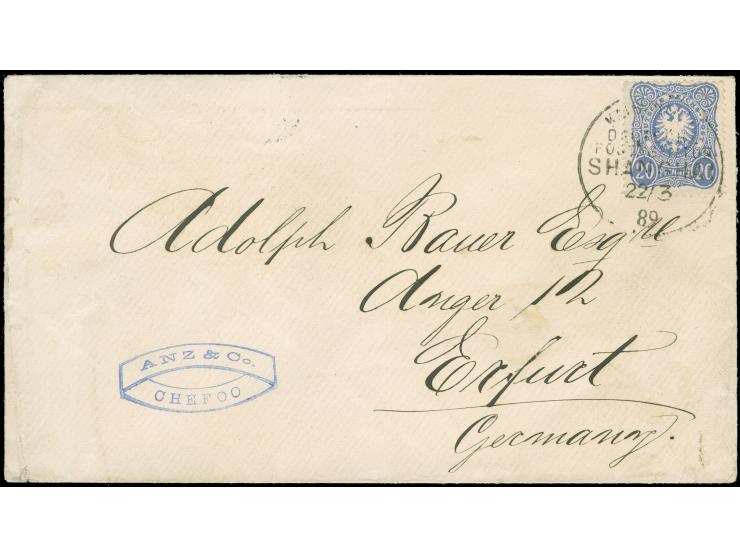 SHANG
22/3
89
20 20
Adolph Bauer Esqre
Anger 12
Erfurt
Germany.
ANZ & Co.
CHEFOO